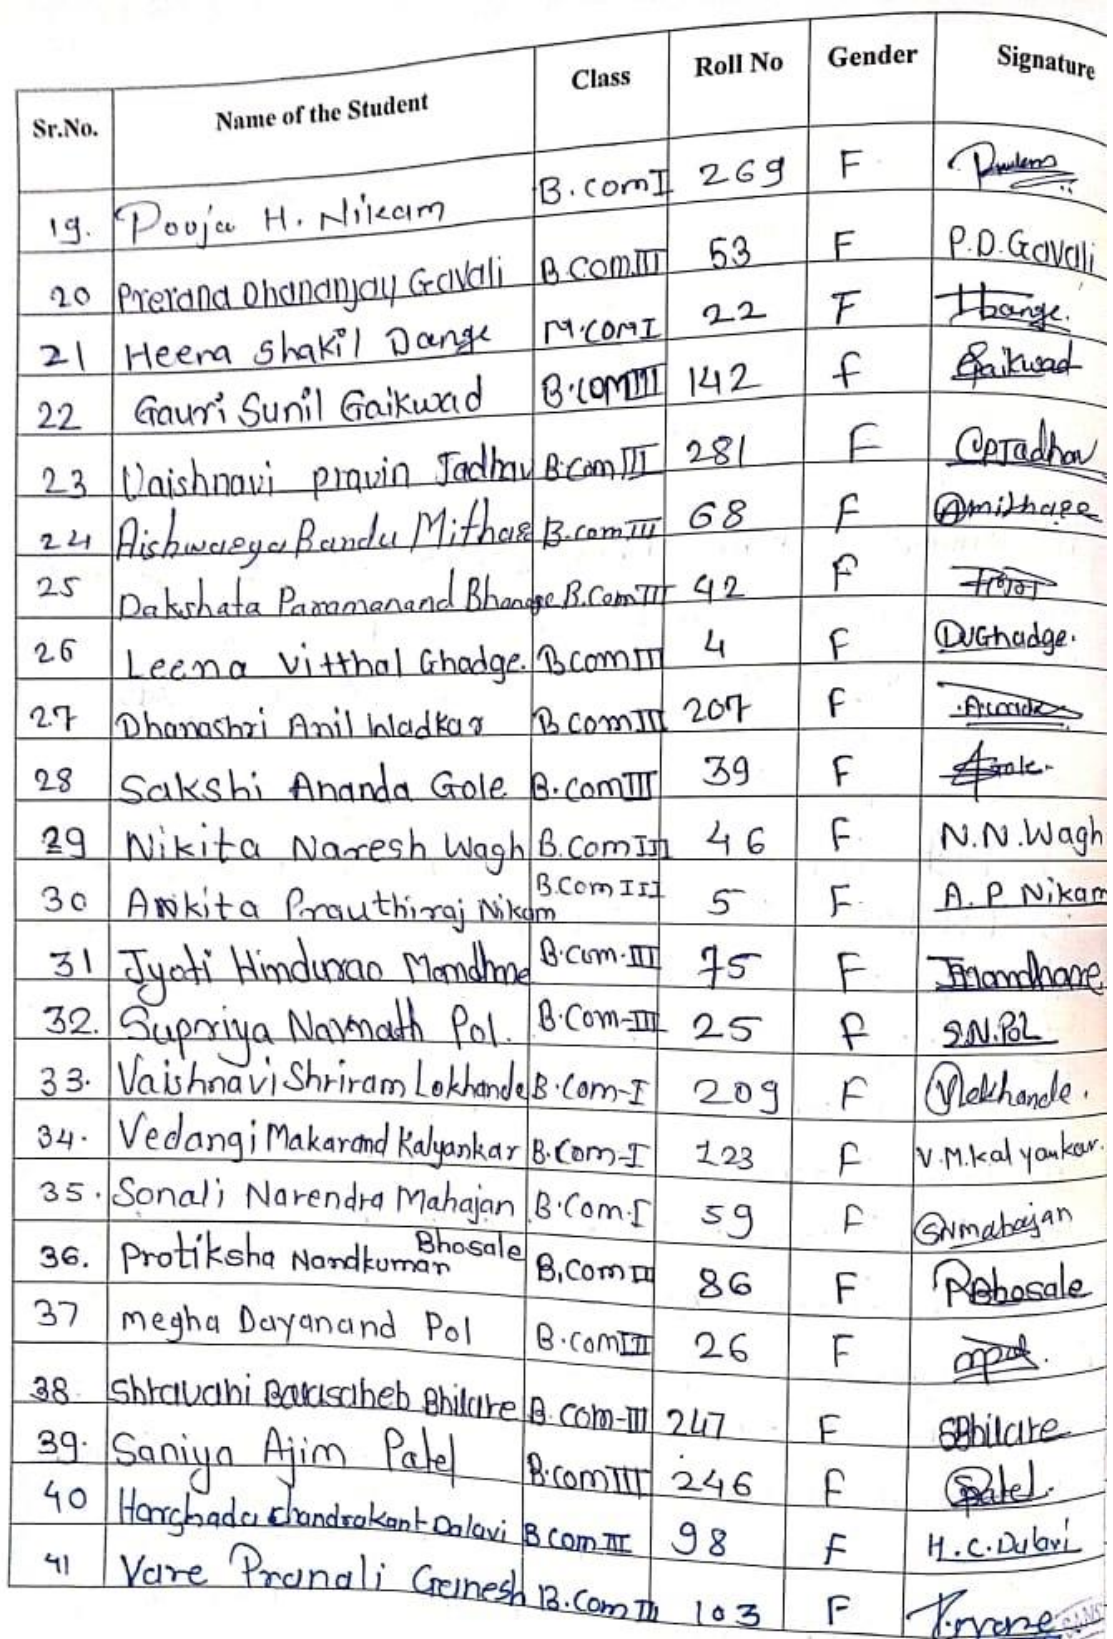 Sr.No. Name of the Student Class Roll No Gender Signature
19. Pooja H. Nikam B.com I 269 F
20 Prerana Dhananjay Gavali B.Com III 53 F P.D.Gavali
21 Heena Shakil Dange M.COM I 22 F
22 Gauri Sunil Gaikwad B.COM III 142 f Gaikwad
23 Vaishnavi pravin Jadhav B.Com III 281 F
24 Bandu B.com III 68 F Amithare
25 Dakshata Paramanand B.Com III 42 F
26 Leena Vitthal Ghadge. B com III 4 F Ghadge.
27 Dhanashri Anil Wadkar B com III 207 F
28 Sakshi Ananda Gole B.com III 39 F
29 Nikita Naresh Wagh B.Com III 46 F N.N.Wagh
30 Ankita Prauthiraj Nikam B.Com III 5 F A.P Nikam
31 Jyoti Hindurao B.com.III 75 F
32. Supriya Navnath Pol. B.Com-III 25 F S.N.Pol
33. Vaishnavi Shriram Lokhande B.Com-I 209 F
34. Vedangi Makarand Kalyankar B.Com-I 123 F V.M.Kalyankar.
35. Sonali Narendra Mahajan B.Com.I 59 F SNmahajan
36. Protiksha Nandkumar Bhosale B.Com III 86 F
37 megha Dayanand Pol B.com III 26 F
38 Shravani Bhilare B.com-III 247 F SBhilare
39. Saniya Ajim Patel B.com III 246 F Patel.
40 Chandrakant Dalavi B com III 98 F H.C.Dalavi
41 Vare Pranali B.Com III 103 F